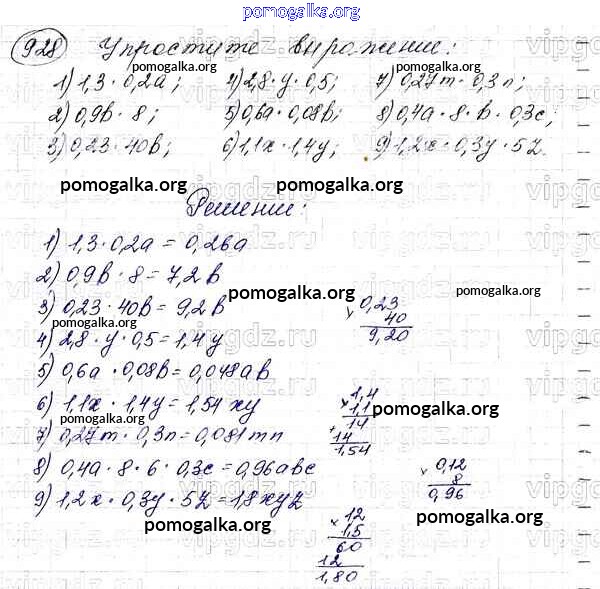 pomogalka.org
928 Упростите выражение:
1) 1,3 · 0,2a; 4) 2,8 · y · 0,5; 7) 0,27m · 0,3n;
2) 0,9b · 8; 5) 0,6a · 0,08b; 8) 0,4a · 8 · b · 0,3c;
3) 0,23 · 40b; 6) 1,1x · 1,4y; 9) 1,2x · 0,3y · 5z.
pomogalka.org pomogalka.org pomogalka.org
Решение:
1) 1,3 · 0,2a = 0,26a
2) 0,9b · 8 = 7,2b
3) 0,23 · 40b = 9,2b
4) 2,8 · y · 0,5 = 1,4y
5) 0,6a · 0,08b = 0,048ab
6) 1,1x · 1,4y = 1,54xy
7) 0,27m · 0,3n = 0,081mn
8) 0,4a · 8 · 6 · 0,3c = 0,96abc
9) 1,2x · 0,3y · 5z = 1,8xyz
× 0,23
40
9,20
× 1,4
1,1
+ 14
14
1,54
× 0,12
8
0,96
× 12
1,5
60
12
1,80
pomogalka.org
pomogalka.org
pomogalka.org
pomogalka.org
pomogalka.org
pomogalka.org
pomogalka.org
pomogalka.org
vipgdz.ru
vipgdz.ru
vipgdz.ru
vipgdz.ru